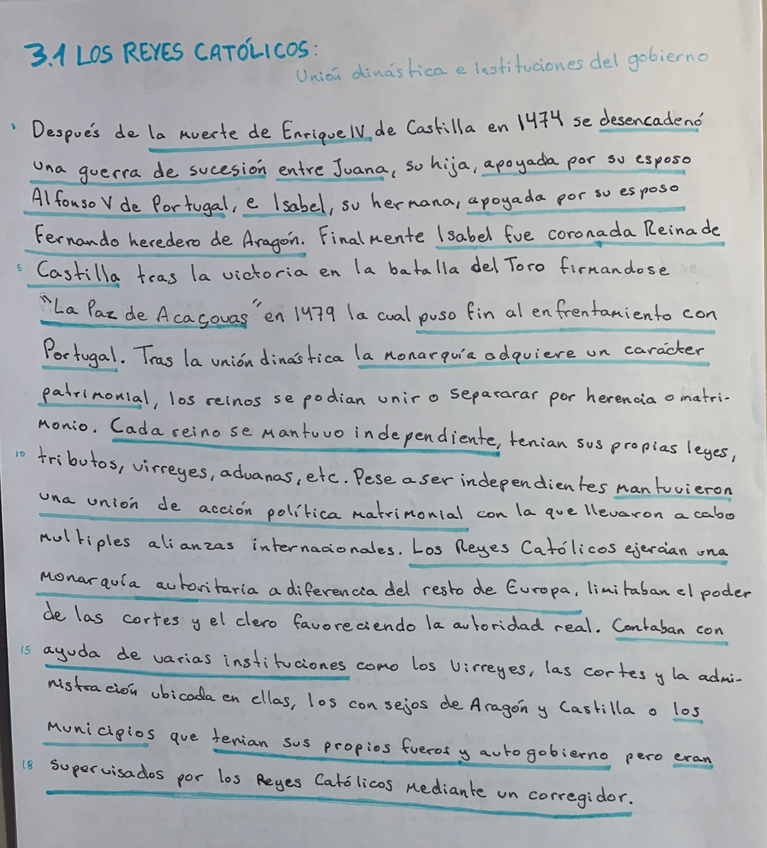 3.1 LOS REYES CATÓLICOS:
Unión dinástica e Instituciones del gobierno
Después de la muerte de Enrique IV de Castilla en 1474 se desencadenó
una guerra de sucesión entre Juana, su hija, apoyada por su esposo
Alfonso V de Portugal, e Isabel, su hermana, apoyada por su esposo
Fernando heredero de Aragón. Finalmente Isabel fue coronada Reina de
5 Castilla tras la victoria en la batalla del Toro firmandose se
"La Paz de Acaçovas" en 1479 la cual puso fin al enfrentamiento con
Portugal. Tras la unión dinástica la monarquía adquiere un carácter
patrimonial, los reinos se podian unir o separarar por herencia o matri-
monio. Cada reino se mantuvo independiente, tenian sus propias leyes,
10 tributos, virreyes, aduanas, etc. Pese a ser independientes mantuvieron
una unión de acción política matrimonial con la que llevaron a cabo
multiples alianzas internacionales. Los Reyes Católicos ejercian una
monarquía autoritaria a diferencia del resto de Europa, limitaban el poder
de las cortes y el clero favoreciendo la autoridad real. Contaban con
15 ayuda de varias instituciones como los Virreyes, las cortes y la admi-
nistración ubicada en ellas, los consejos de Aragón y Castilla o los
Municipios que tenian sus propios fueros y autogobierno pero eran
18 supervisados por los Reyes Católicos mediante un corregidor.